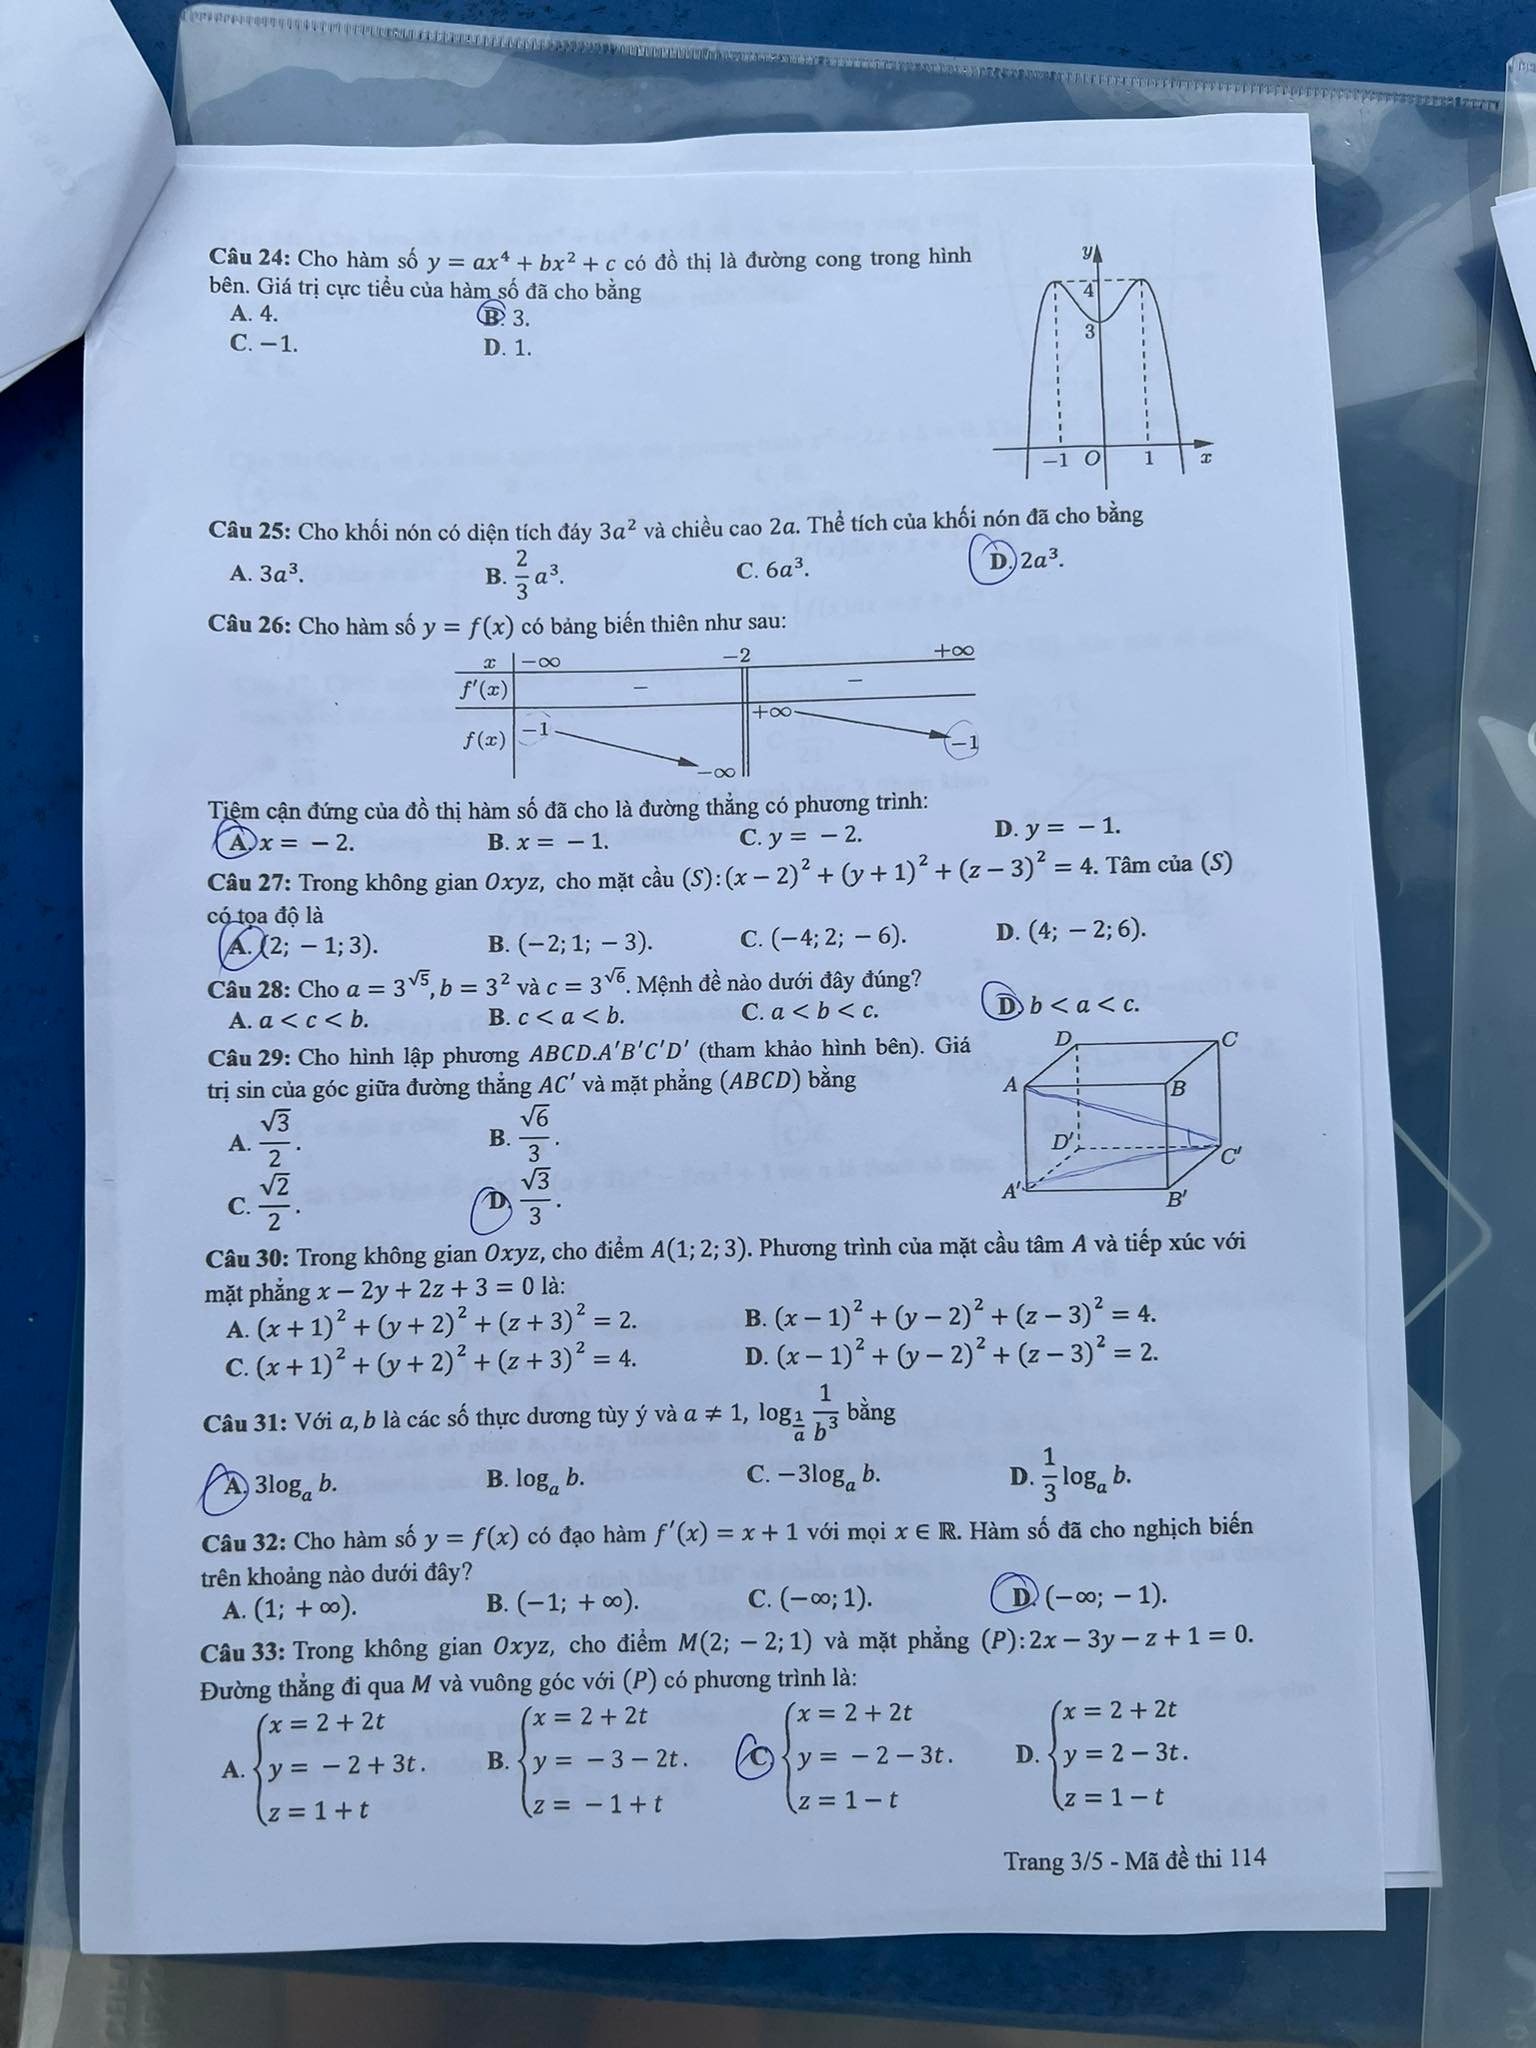 Câu 24: Cho hàm số y = ax⁴ + bx² + c có đồ thị là đường cong trong hình
bên. Giá trị cực tiểu của hàm số đã cho bằng
A. 4. B. 3.
C. −1. D. 1.
y
4
3
−1 O 1 x
Câu 25: Cho khối nón có diện tích đáy 3a² và chiều cao 2a. Thể tích của khối nón đã cho bằng
A. 3a³. B. 2/3 a³. C. 6a³. D. 2a³.
Câu 26: Cho hàm số y = f(x) có bảng biến thiên như sau:
x −∞ −2 +∞
f′(x) − −
f(x) −1 −∞ +∞ −1
Tiệm cận đứng của đồ thị hàm số đã cho là đường thẳng có phương trình:
A. x = − 2. B. x = − 1. C. y = − 2. D. y = − 1.
Câu 27: Trong không gian Oxyz, cho mặt cầu (S): (x − 2)² + (y + 1)² + (z − 3)² = 4. Tâm của (S)
có tọa độ là
A. (2; − 1; 3). B. (−2; 1; − 3). C. (−4; 2; − 6). D. (4; − 2; 6).
Câu 28: Cho a = 3^√5, b = 3² và c = 3^√6. Mệnh đề nào dưới đây đúng?
A. a < c < b. B. c < a < b. C. a < b < c. D. b < a < c.
Câu 29: Cho hình lập phương ABCD.A′B′C′D′ (tham khảo hình bên). Giá
trị sin của góc giữa đường thẳng AC′ và mặt phẳng (ABCD) bằng
A. √3/2. B. √6/3.
C. √2/2. D. √3/3.
D C
A B
D′ C′
A′ B′
Câu 30: Trong không gian Oxyz, cho điểm A(1; 2; 3). Phương trình của mặt cầu tâm A và tiếp xúc với
mặt phẳng x − 2y + 2z + 3 = 0 là:
A. (x + 1)² + (y + 2)² + (z + 3)² = 2. B. (x − 1)² + (y − 2)² + (z − 3)² = 4.
C. (x + 1)² + (y + 2)² + (z + 3)² = 4. D. (x − 1)² + (y − 2)² + (z − 3)² = 2.
Câu 31: Với a, b là các số thực dương tùy ý và a ≠ 1, log_(1/a) 1/b³ bằng
A. 3logₐ b. B. logₐ b. C. −3logₐ b. D. 1/3 logₐ b.
Câu 32: Cho hàm số y = f(x) có đạo hàm f′(x) = x + 1 với mọi x ∈ ℝ. Hàm số đã cho nghịch biến
trên khoảng nào dưới đây?
A. (1; + ∞). B. (−1; + ∞). C. (−∞; 1). D. (−∞; − 1).
Câu 33: Trong không gian Oxyz, cho điểm M(2; − 2; 1) và mặt phẳng (P): 2x − 3y − z + 1 = 0.
Đường thẳng đi qua M và vuông góc với (P) có phương trình là:
A. {x = 2 + 2t B. {x = 2 + 2t C. {x = 2 + 2t D. {x = 2 + 2t
y = − 2 + 3t. y = − 3 − 2t. y = − 2 − 3t. y = 2 − 3t.
z = 1 + t z = − 1 + t z = 1 − t z = 1 − t
Trang 3/5 - Mã đề thi 114